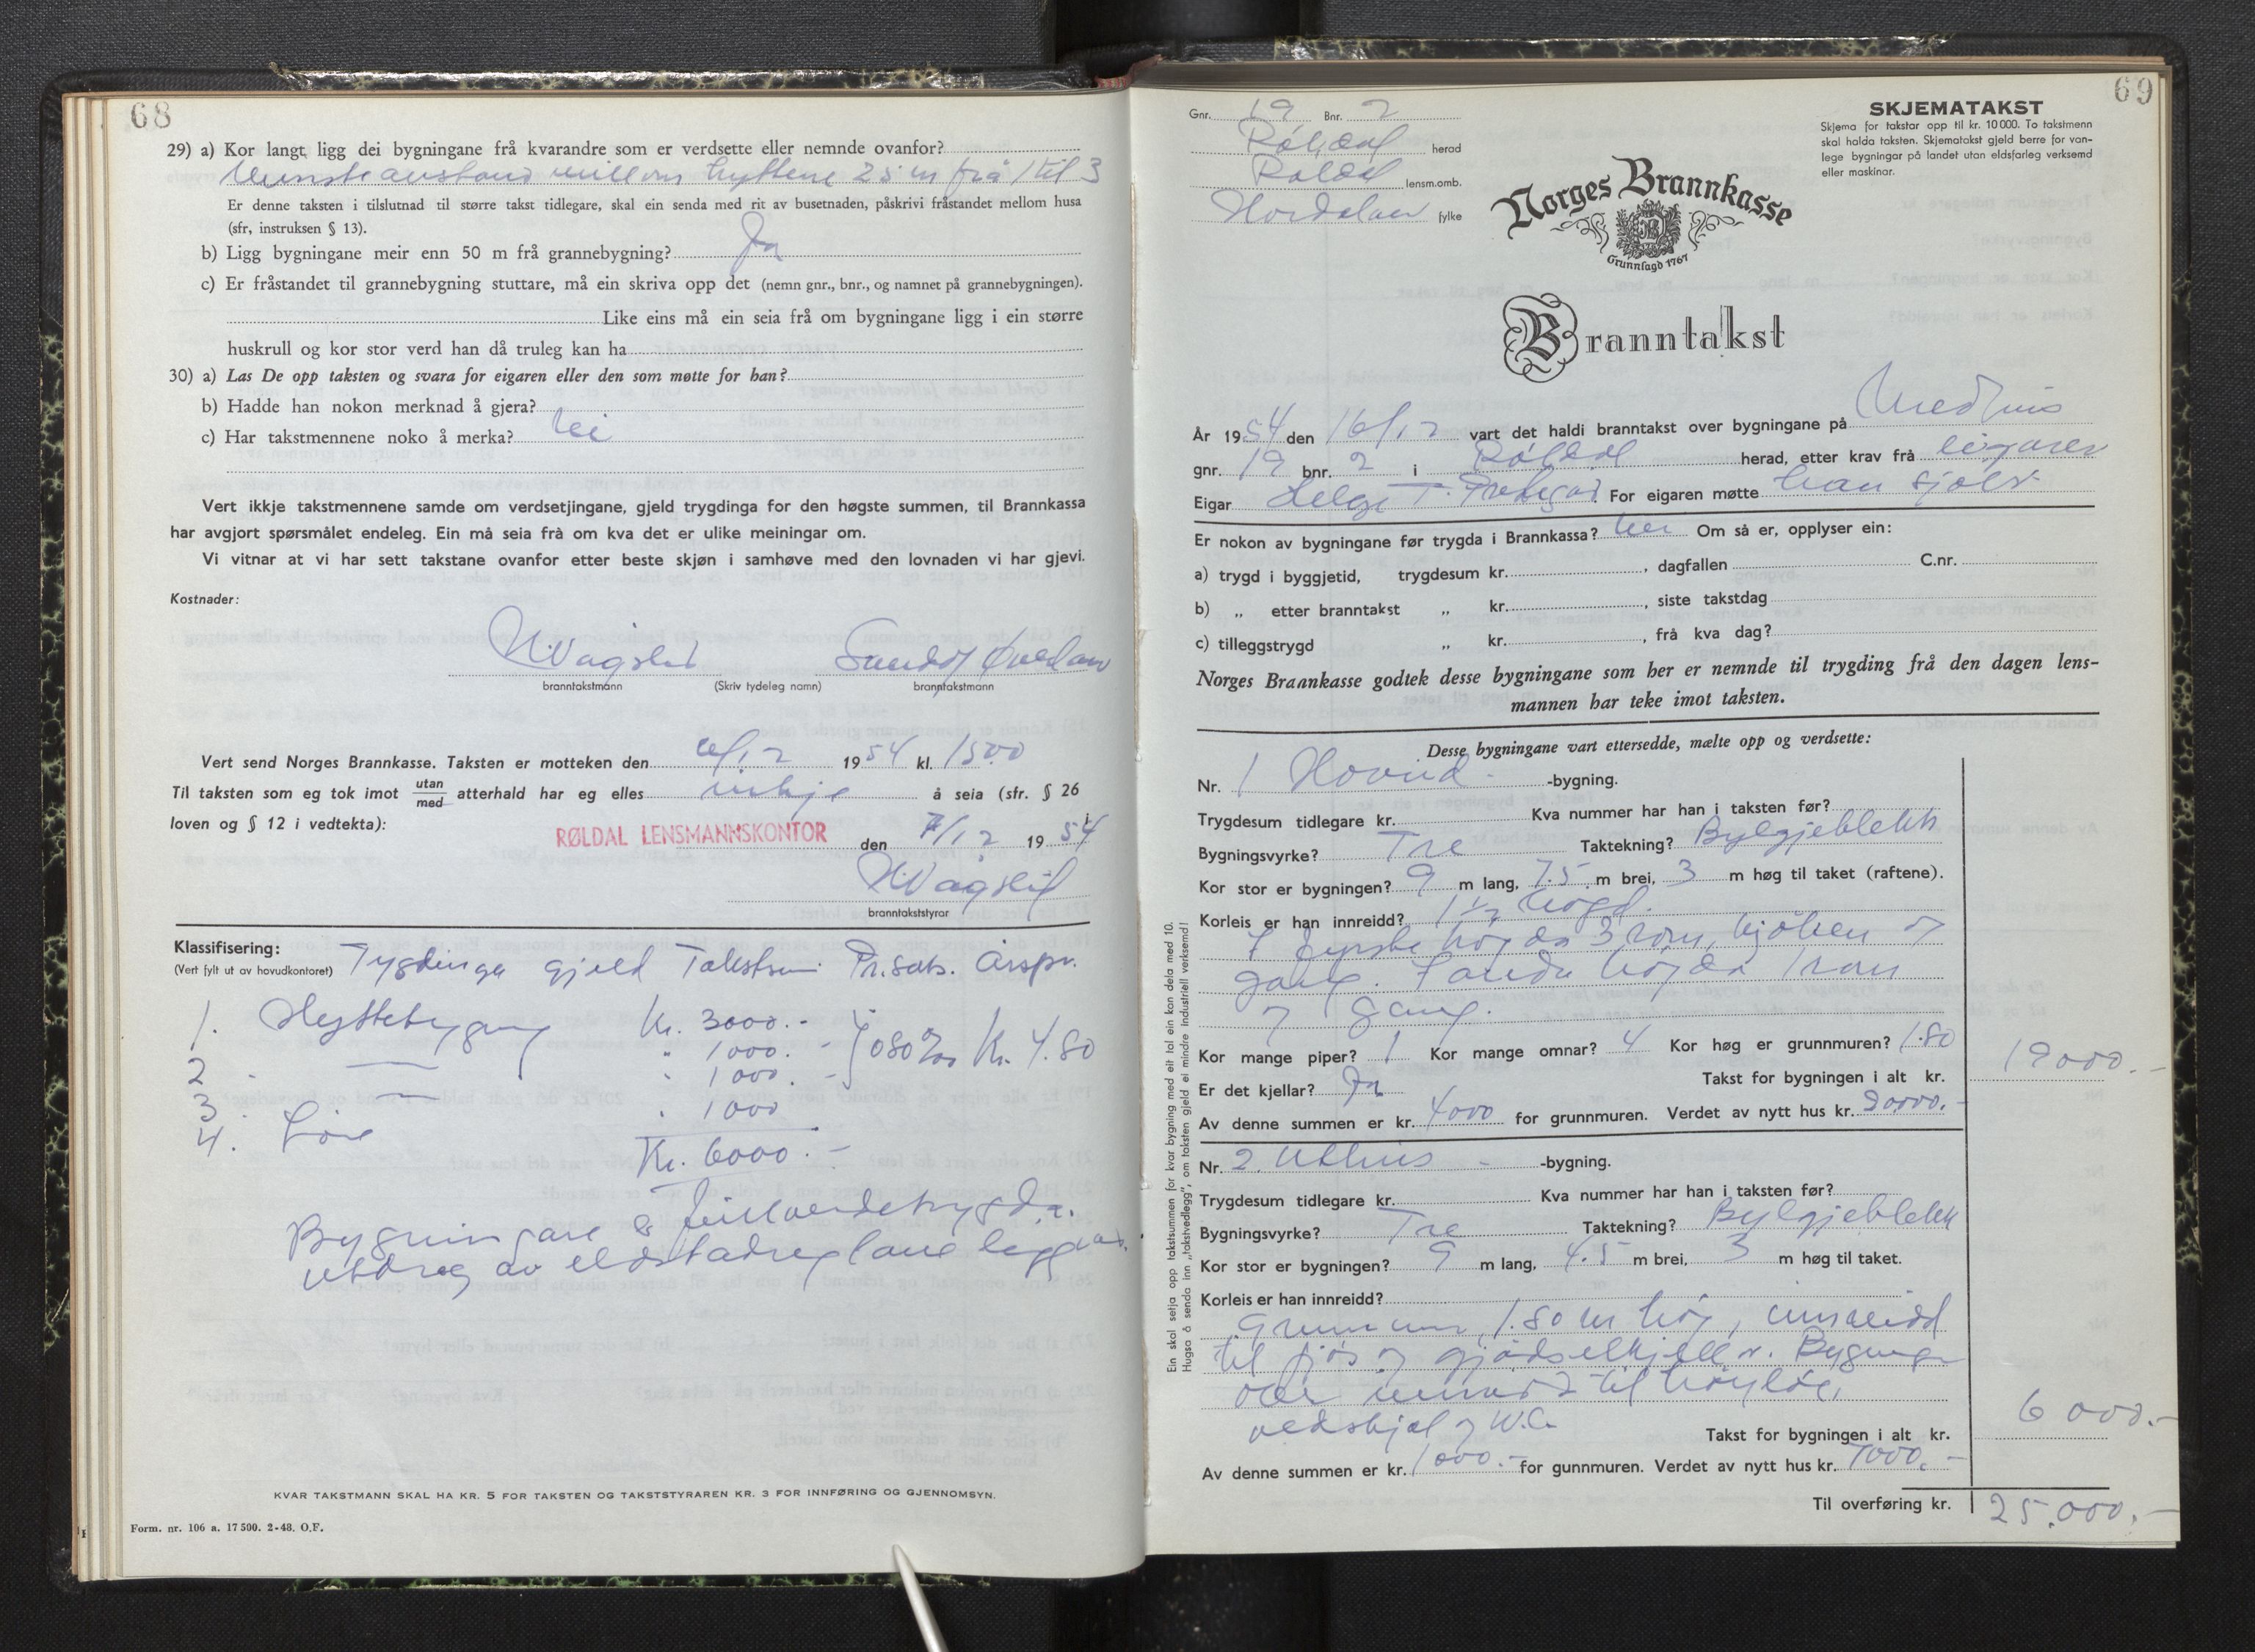 68
29) a) Kor langt ligg dei bygningane frå kvarandre som er verdsette eller nemnde ovanfor?
Minsteavstand millom hyttene 25 m frå 1 til 3
Er denne taksten i tilslutnad til større takst tidlegare, skal ein senda med rit av busetnaden, påskrivi fråstandet mellom husa
(sfr, instruksen § 13).
b) Ligg bygningane meir enn 50 m frå grannebygning? Ja
c) Er fråstandet til grannebygning stuttare, må ein skriva opp det (nemn gnr., bnr., og namnet på grannebygningen).
Like eins må ein seia frå om bygningane ligg i ein større
huskrull og kor stor verd han då truleg kan ha
30) a) Las De opp taksten og svara for eigaren eller den som møtte for han?
b) Hadde han nokon merknad å gjera?
c) Har takstmennene noko å merka? Nei
Vert ikkje takstmennene samde om verdsetjingane, gjeld trygdinga for den høgste summen, til Brannkassa
har avgjort spørsmålet endeleg. Ein må seia frå om kva det er ulike meiningar om.
Vi vitnar at vi har sett takstane ovanfor etter beste skjøn i samhøve med den lovnaden vi har gjevi.
Kostnader:
H Vågslid
branntakstmann (Skriv tydeleg namn) branntakstmann
Vert send Norges Brannkasse. Taksten er motteken den 6/12 1954 kl. 1500
Til taksten som eg tok imot utan/med atterhald har eg elles inkje å seia (sfr. § 26
loven og § 12 i vedtekta):
RØLDAL LENSMANNSKONTOR den 7/12 1954
H Vågslid
branntakststyrar
Klassifisering: Tygdinga gjeld Takstsum Pr.sats. Årspr.
(Vert fylt ut av hovudkontoret)
1. Hyttebygning Kr. 3000.-
2 - — " 1000.- 080‰ Kr. 4.80
3 - — " 1000.-
4. Løe " 1000
Kr. 6000.-
Bygningane er fullverdetrygda.
Utdrag av eldstadreglane legg
KVAR TAKSTMANN SKAL HA KR. 5 FOR TAKSTEN OG TAKSTSTYRAREN KR. 3 FOR INNFØRING OG GJENNOMSYN.
Form. nr. 106 a. 17 500. 2-48. O.F.
69
Gnr. 19 Bnr. 2
Røldal herad
Røldal lensm.omb.
Hordaland fylke
SKJEMATAKST
Skjema for takstar opp til kr. 10 000. To takstmenn
skal halda taksten. Skjematakst gjeld berre for van-
lege bygningar på landet utan eldsfarleg verksemd
eller maskinar.
Norges Brannkasse
Grunnlagd 1767
Branntakst
År 1954 den 16/12 vart det haldi branntakst over bygningane på Medhus
gnr. 19 bnr. 2 i Røldal herad, etter krav frå eigaren
Eigar Helge T. For eigaren møtte han sjølv
Er nokon av bygningane før trygda i Brannkassa? Nei Om så er, opplyser ein:
a) trygd i byggjetid, trygdesum kr. , dagfallen C.nr.
b) „ etter branntakst „ kr. , siste takstdag
c) tilleggstrygd „ kr. , frå kva dag?
Norges Brannkasse godtek desse bygningane som her er nemnde til trygding frå den dagen lens-
mannen har teke imot taksten.
Desse bygningane vart ettersedde, mælte opp og verdsette:
Nr. 1 Hovud- -bygning.
Trygdesum tidlegare kr. Kva nummer har han i taksten før?
Bygningsvyrke? Tre Taktekning? Bylgjeblekk
Kor stor er bygningen? 9 m lang, 7.5 m brei, 3 m høg til taket (raftene).
Korleis er han innreidd? 1 ½ høgd.
I fyrste høgda 3 rom, kjøken og
gang. I andre høgda 1 rom
og gang.
Kor mange piper? 1 Kor mange omnar? 4 Kor høg er grunnmuren? 1.80
Er det kjellar? Ja Takst for bygningen i alt kr. 19000.-
Av denne summen er kr. 4000 for grunnmuren. Verdet av nytt hus kr. 20000.-
Nr. 2. Uthus - -bygning.
Trygdesum tidlegare kr. Kva nummer har han i taksten før?
Bygningsvyrke? Tre Taktekning? Bylgjeblekk
Kor stor er bygningen? 9 m lang, 4.5 m brei, 3 m høg til taket.
Korleis er han innreidd?
Grunnmur 1.80 m høg, innreidd
til fjøs og gjødselkjellar. Bygningen
over innreidd til høyløe,
vedskjol og W.C.
Takst for bygningen i alt kr. 6000.-
Av denne summen er kr. 1000.- for gunnmuren. Verdet av nytt hus kr. 7000.-
Til overføring kr. 25.000.-
Ein skal setja opp takstsummen for kvar bygning med eit tal ein kan dela med 10.
Hugsa å senda inn „takstvedlegg", om taksten gjeld ei mindre industriell verksemd!